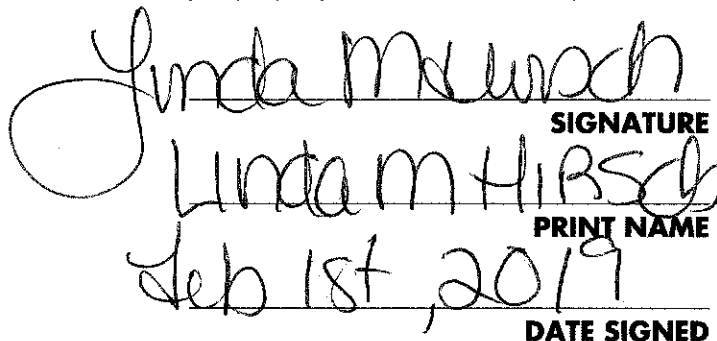 Linda M Hirsch
SIGNATURE
Linda M HIRSch
PRINT NAME
Feb 1st, 2019
DATE SIGNED